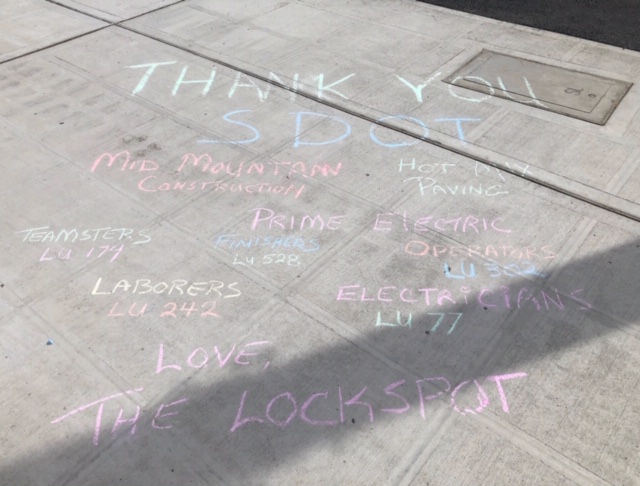 THANK YOU
SDOT
MID MOUNTAIN CONSTRUCTION
HOT MIX PAVING
PRIME ELECTRIC
TEAMSTERS LU 174
FINISHERS LU 528
OPERATORS LU 302
LABORERS LU 242
ELECTRICIANS LU 77
LOVE,
THE LOCKSPOT